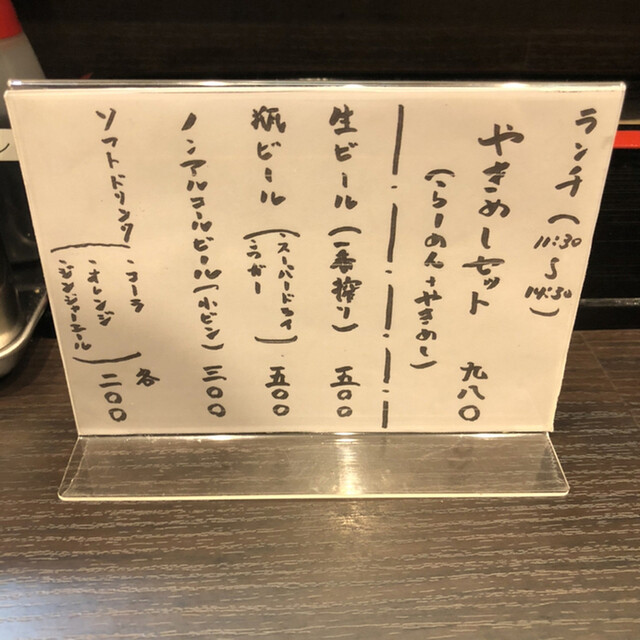 ランチ(11:30〜14:30)
やきめしセット 九八〇
(らーめん+やきめし)
生ビール(一番搾り) 五〇〇
瓶ビール(スーパードライ・ラガー) 五〇〇
ノンアルコールビール(小ビン) 三〇〇
ソフトドリンク(・コーラ
・オレンジ
・ジンジャーエール) 各二〇〇